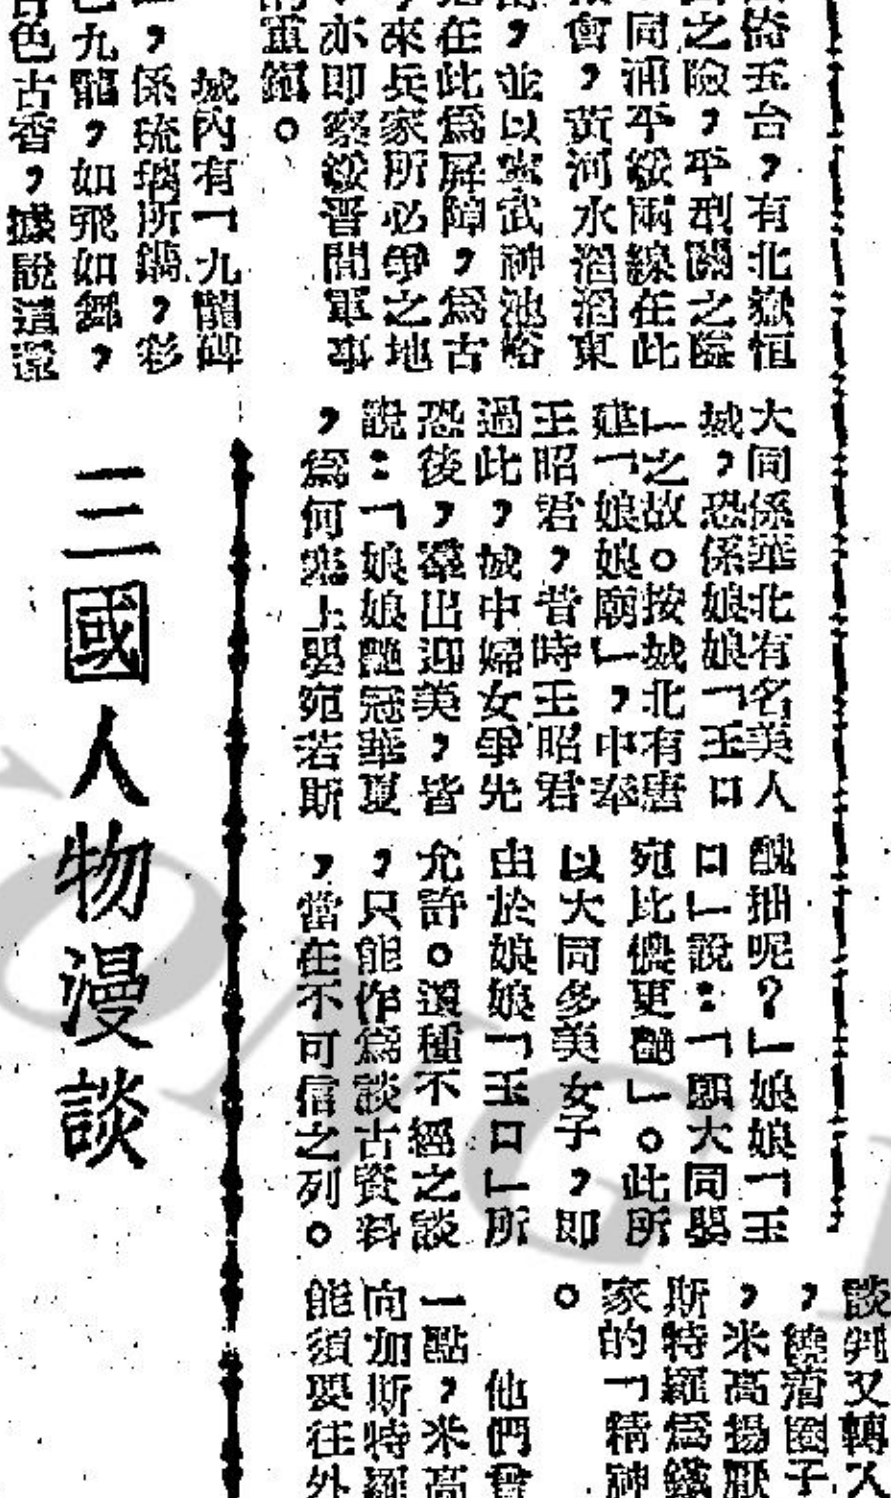 倚五台，有北嶽恒
之險，平型關之隘
同浦平綏兩線在此
會，黃河水滔滔東
，並以寧武神池峪
在此為屏障，為古
來兵家所必爭之地
亦即察綏晋間軍事
重鎮。
城內有「九龍碑
，係琉璃所鑄，彩
九龍，如飛如舞，
色古香，據說這裡
大同係華北有名美人
城，恐係娘娘「玉口
」之故。按城北有唐
建「娘娘廟」，中奉
王昭君，昔時王昭君
過此，城中婦女爭先
恐後，羣出迎美，皆
說：「娘娘艷冠華夏
，為何上嬰宛若斯
醜抽呢？」娘娘「玉
口」說：「願大同嬰
宛比儂更艷」。此所
以大同多美女子，即
由於娘娘「玉口」所
允許。這種不經之談
，只能作為談古資料
，當在不可信之列。
三國人物漫談
談判又轉入
，繞着圈子
，米高揚厭
斯特羅為鐵
家的「精神
。
他們曾
一點，米高
向加斯特羅
能須要往外